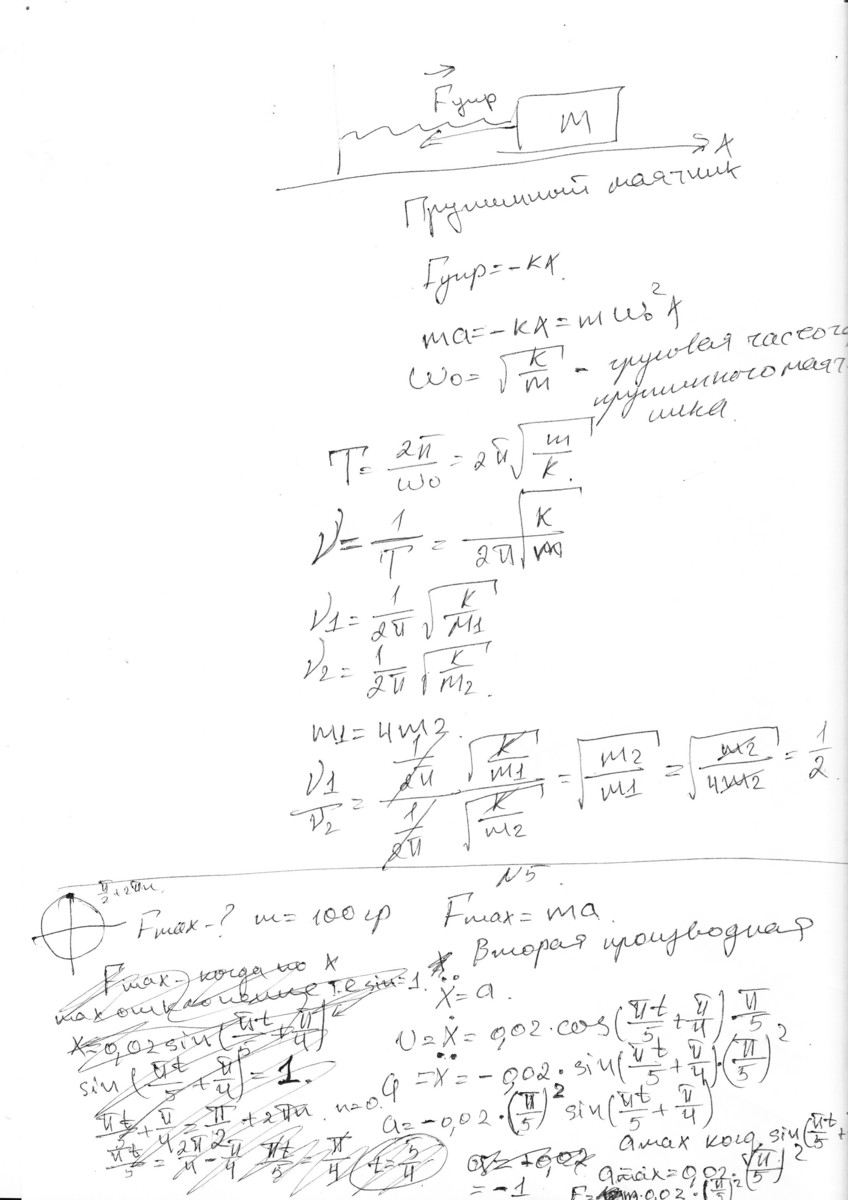 Fупр
m
X
Пружинный маятник
Fупр=-kx.
ma=-kx=mω₀²x
ω₀=√(k/m) - круговая часто
пружинного маят-
ника.
T=2π/ω₀=2π√(m/k).
ν=1/T=√k/(2π√m)
ν1=1/2π √(k/m1)
ν2=1/2π √(k/m2).
m1=4m2.
ν1/ν2=(1/2π √(k/m1))/(1/2π √(k/m2))=√(m2/m1)=√(m2/4m2)=1/2.
N5.
π/2+2πn.
Fmax-? m=100гр Fmax=ma.
Вторая производная
Fmax-когда по x
max отклонение т.е sin=1.
ẍ=a.
x=0,02 sin(πt/5+π/4)
υ=ẋ=0,02·cos(πt/5+π/4)·π/5
sin(πt/5+π/4)=1.
a=ẍ=-0,02·sin(πt/5+π/4)·(π/5)²
πt/5+π/4=π/2+2πn. n=0.
a=-0,02·(π/5)² sin(πt/5+π/4)
πt/5=2π/4-π/4 πt/5=π/4 t=5/4
amax когд. sin(πt/5+
=-1
amax=0,02·(π/5)²
F=m·0,02·(π/5)²